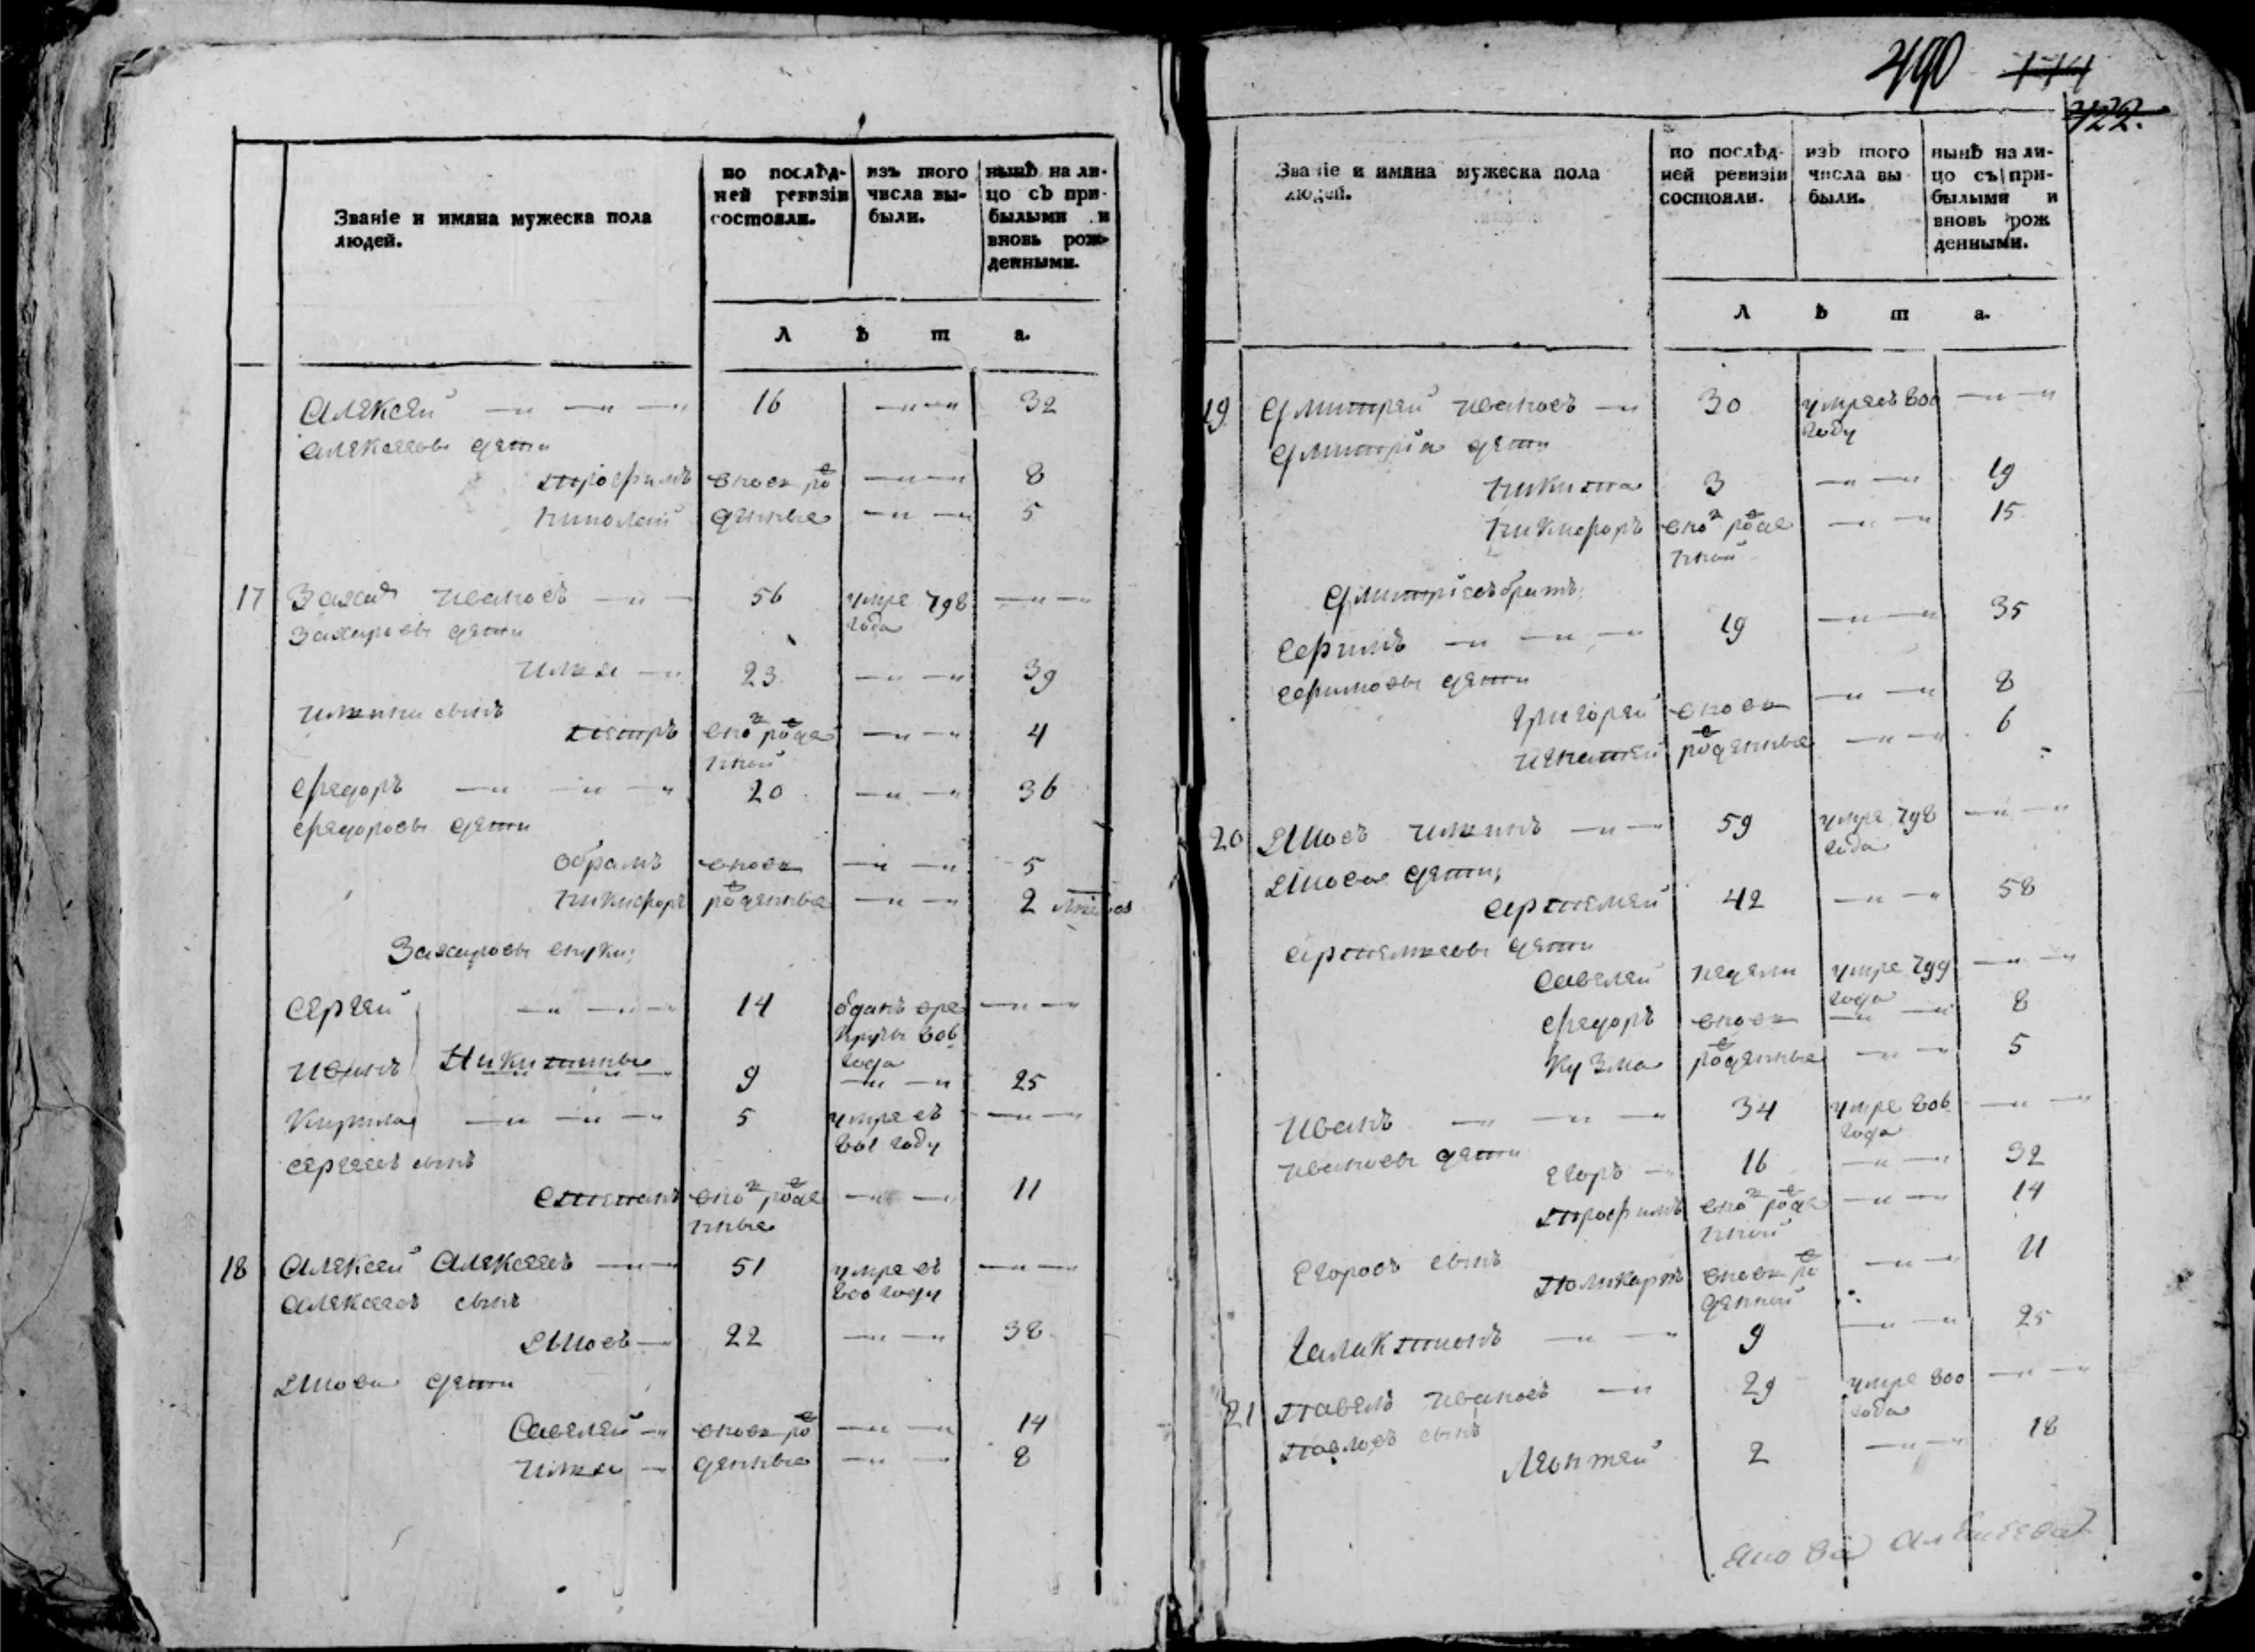 Званіе и имяна мужеска пола
людей.
по послѣд-
ней ревизіи
состояли.
изъ того
числа вы-
были.
нынѣ на ли-
цо съ при-
былыми и
вновь рож-
денными.
Л ѣ т а.
Алексей 16 32
Алексеевы дети
Трофимъ вновь ро 8
Николай денные 5
17 Захаръ Ивановъ 56 умре 798 года
Захаровы дети
Илья 23 39
Ильинъ сынъ
Петръ вно рожде 4
нной
Федоръ 20 36
Федоровы дети
Обрамъ вновь 5
Никифоръ роденные 2
Захаровы внуки;
Сергей 14 одданъ вре
круты 806
года
Иванъ Никитины 9 25
Кирила 5 умре въ
801 году
Сергеевъ сынъ
Степанъ вно роде 11
нные
18 Алексей Алексеевъ 51 умре въ
800 году
Алексеевъ сынъ
Амосъ 22 38
Амоса дети
Савелей вновь ро 14
Илья денные 8
490 174
422.
Званіе и имяна мужеска пола
людей.
по послѣд-
ней ревизіи
состояли.
изъ того
числа вы-
были.
нынѣ на ли-
цо съ при-
былыми и
вновь рож
денными.
Л ѣ т а.
19 Дмитрей Ивановъ 30 умре въ 800
году
Дмитрия дети
Никита 3 19
Никифоръ вно роде 15
нной
Дмитриевъ братъ
Ефимъ 19 35
Ефимовы дети
Григорей вновь 8
Игнатей роденные 6
20 Амосъ Ильинъ 59 умре 798
года
Амоса дети;
Артемей 42 58
Артемьевы дети
Савелей недели умре 799
года
Федоръ вновь 8
Кузма роденные 5
Иванъ 34 умре 806
года
Ивановы дети
Егоръ 16 32
Трофимъ вно роде 14
нной
Егоровъ сынъ
Поликарпъ вновь ро 11
денной
Галактионъ 9 25
21 Павелъ Ивановъ 29 умре 800
года
Павловъ сынъ
Леонтей 2 18